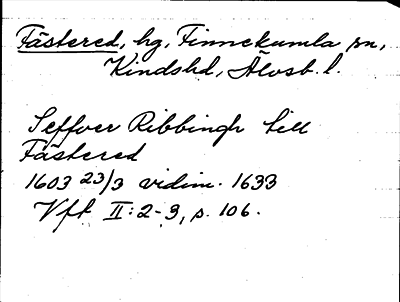 Fästered, hg, Finnekumla sn,
Kindshd, Älvsb. l.
Seffver Ribbingh till
Fästered
1603 23/3 vidim. 1633
Vft II: 2-3, s. 106.